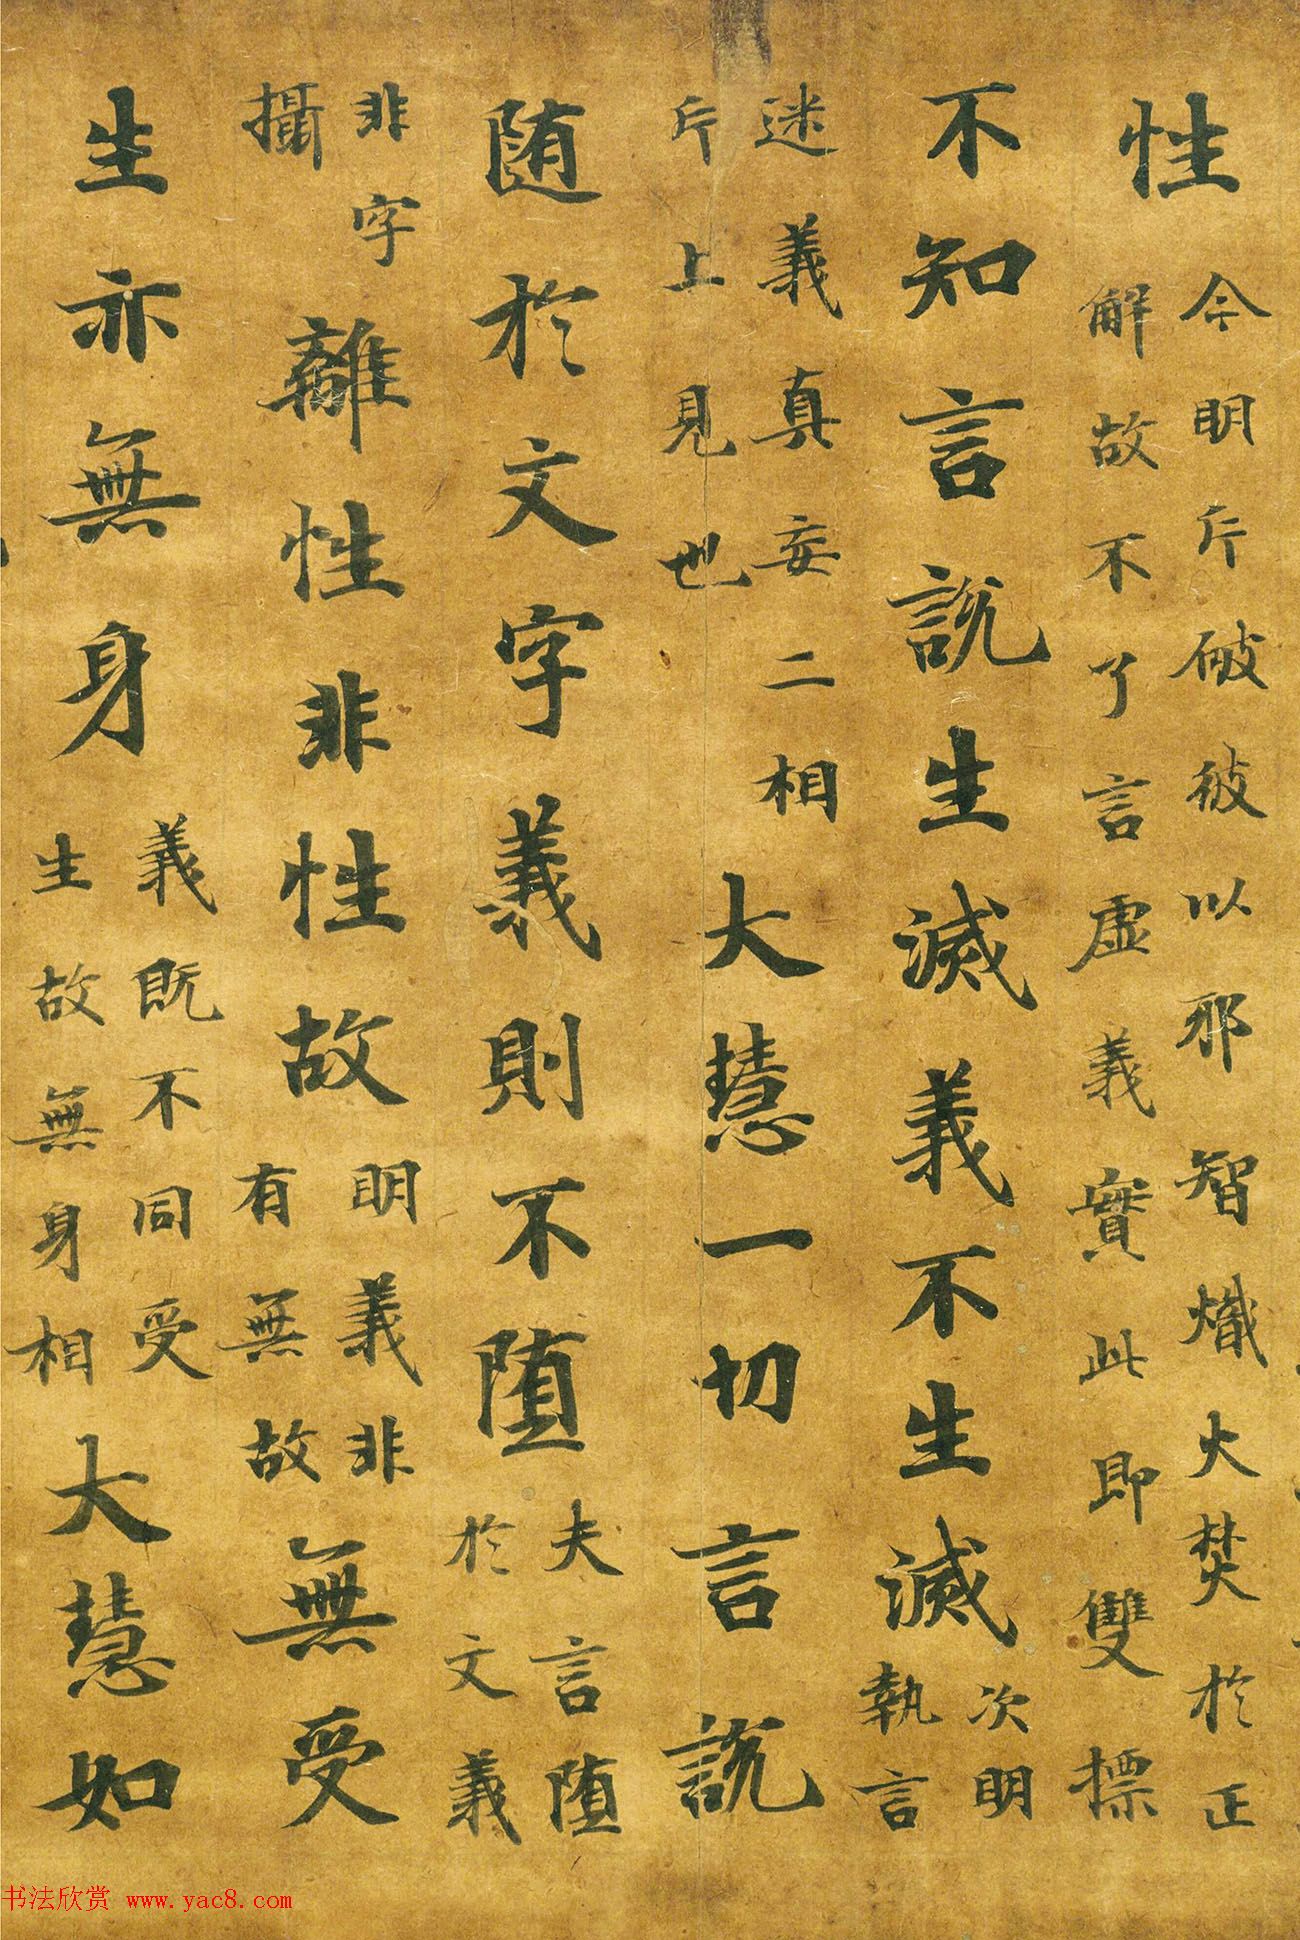 性今明斥破彼以邪智熾火焚於正
解故不了言虛義實此即雙標
不知言說生滅義不生滅次明
執言
迷義真妄二相
斥上見也大慧一切言說
随於文字義則不墮夫言墮
於文義
非字
攝離性非性故明義非
有無故無受
生亦無身義既不同受
生故無身相大慧如
书法欣赏 www.yac8.com